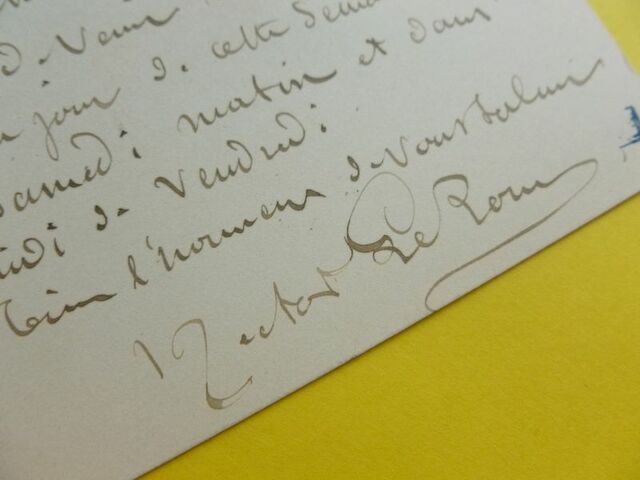 de venir
jour de cette semai
samedi matin et dans
idi de vendredi
bien l'honneur de vous saluer
Hector Le Roux